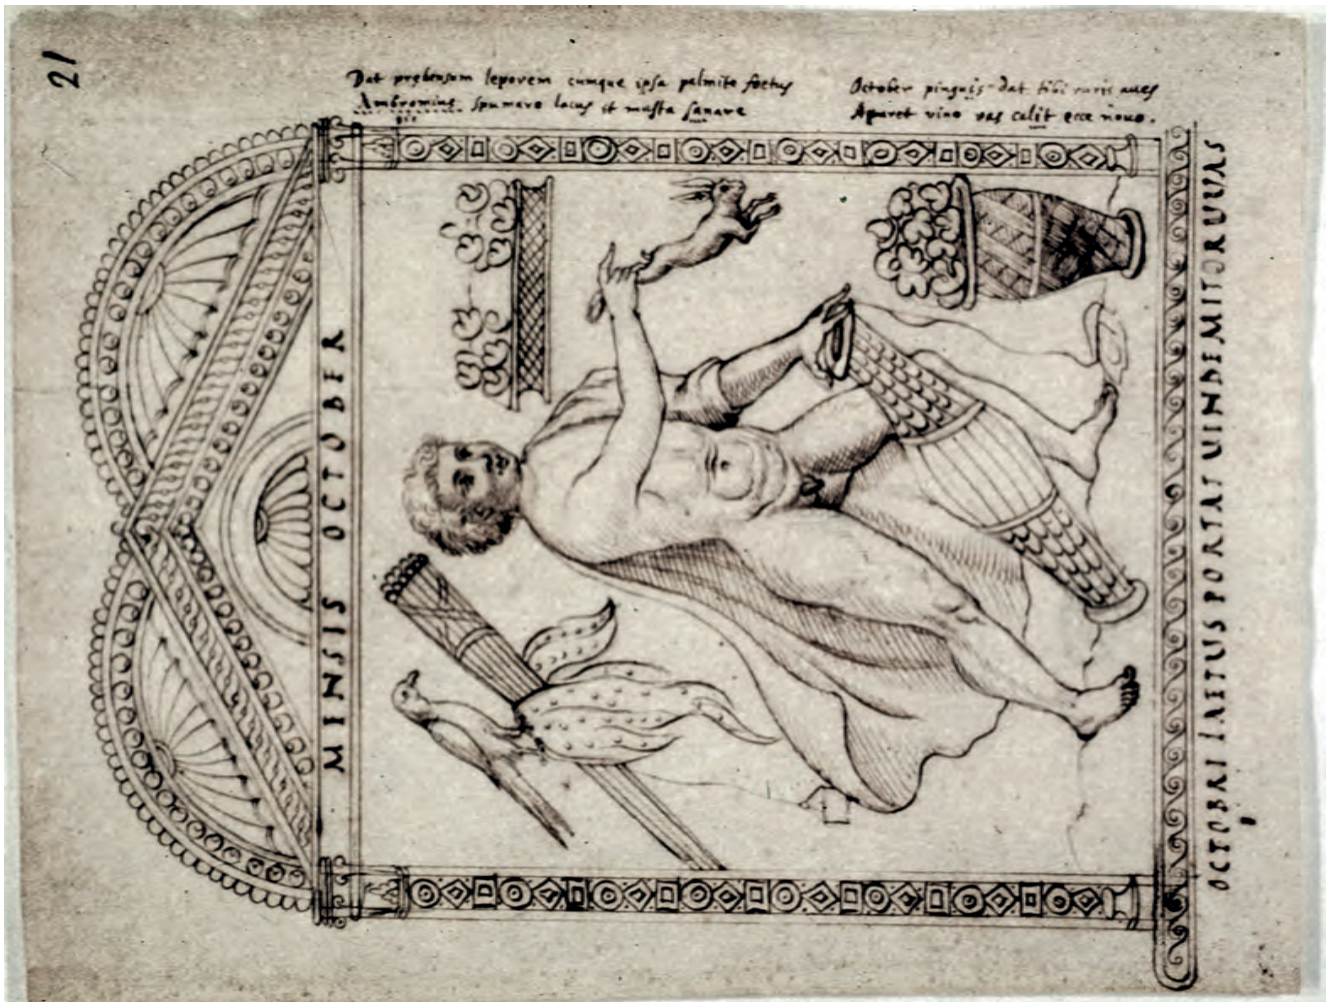 21
Dat pręhensum leporem cumque ipsa palmite foetus
spumare lacus et musta sanare
October pinguis dat tibi ruris aues
Aparet vino vas calit ecce nouo.
MINSIS OCTOBER
OCTOBRI LAETUS PORTAT UINDEMITOR UUAS